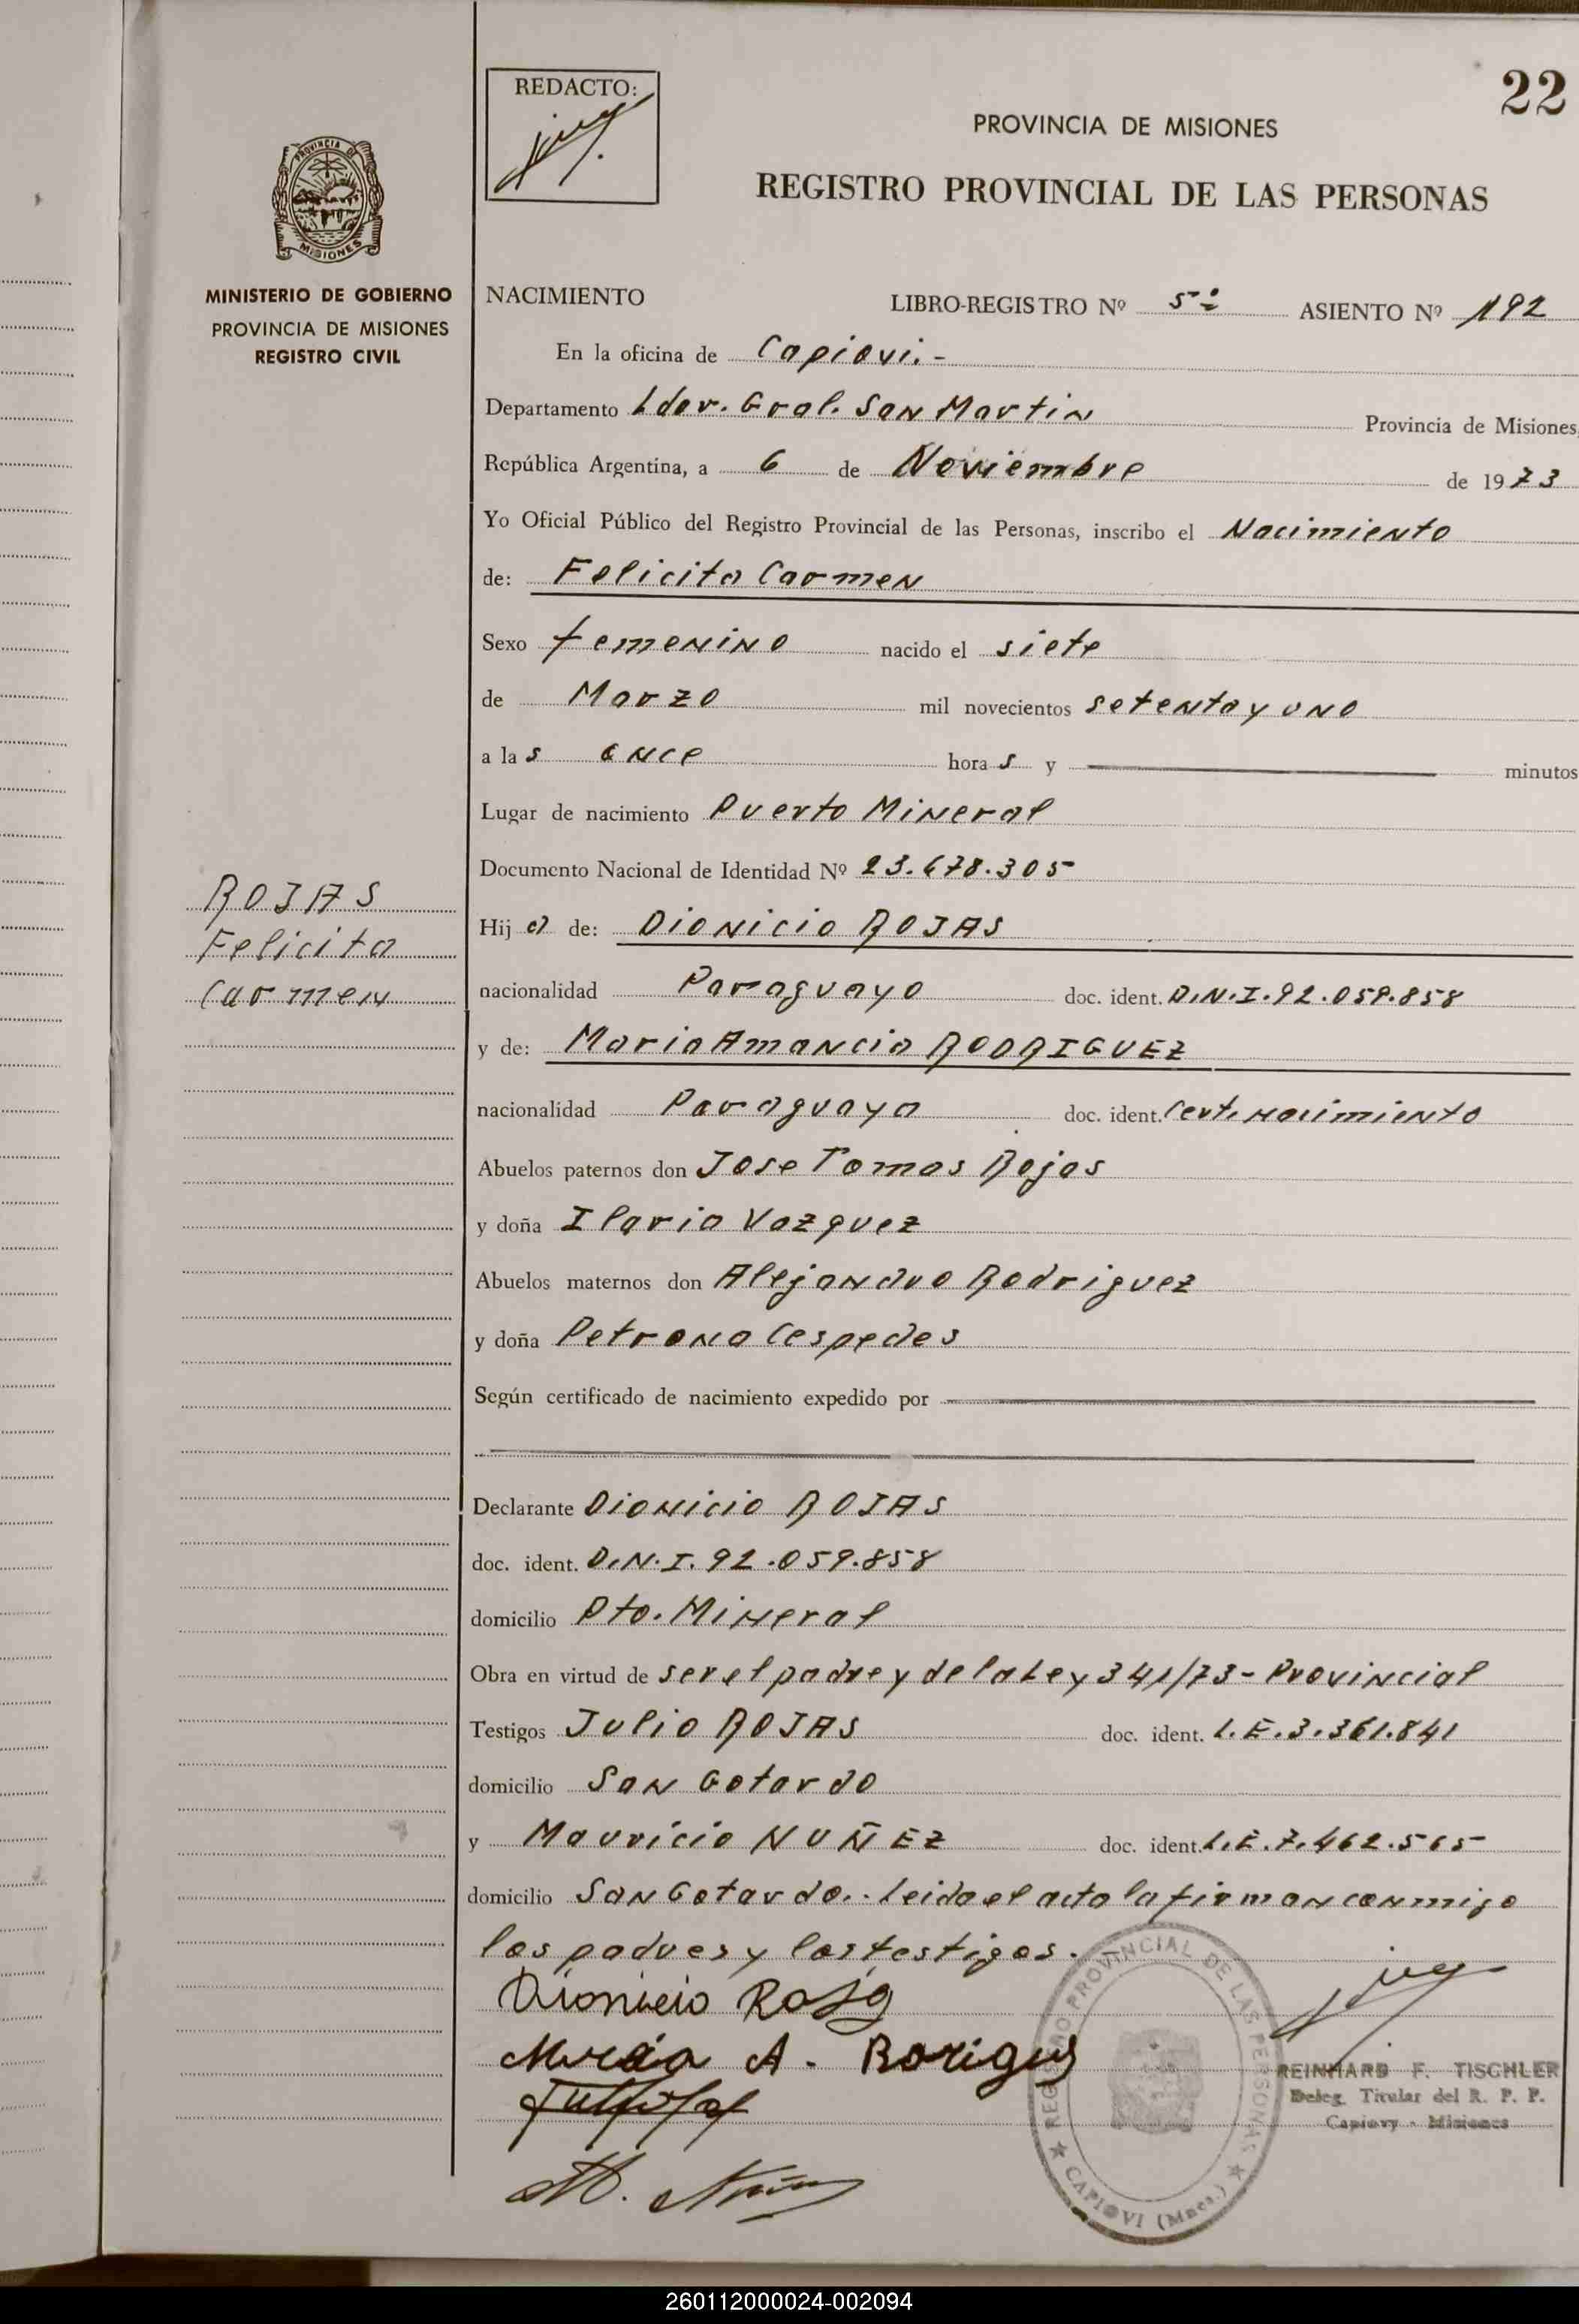 22
REDACTO:
PROVINCIA DE MISIONES
REGISTRO PROVINCIAL DE LAS PERSONAS
PROVINCIA DE
MISIONES
MINISTERIO DE GOBIERNO
PROVINCIA DE MISIONES
REGISTRO CIVIL
NACIMIENTO LIBRO-REGISTRO Nº 5º ASIENTO Nº 192
En la oficina de Capiovi.-
Departamento Ldor. Gral. San Martin Provincia de Misiones,
República Argentina, a 6 de Noviembre de 1973
Yo Oficial Público del Registro Provincial de las Personas, inscribo el Nacimiento
de: Felicita Carmen
Sexo femenino nacido el siete
de Marzo mil novecientos setenta y uno
a las once horas y minutos
Lugar de nacimiento Puerto Mineral
Documento Nacional de Identidad Nº 23.678.305
ROJAS
Felicita
Carmen
Hija de: Dionicio ROJAS
nacionalidad Paraguayo doc. ident. D.N.I. 92.059.858
y de: Maria Amancia RODRIGUEZ
nacionalidad Paraguaya doc. ident. Cert. nacimiento
Abuelos paternos don Jose Tomas Rojas
y doña Ilaria Vazquez
Abuelos maternos don Alejandro Rodriguez
y doña Petrona Cespedes
Según certificado de nacimiento expedido por
Declarante Dionicio ROJAS
doc. ident. D.N.I. 92.059.858
domicilio Pto. Mineral
Obra en virtud de ser el padre y de la Ley 341/73 - Provincial
Testigos Julio ROJAS doc. ident. L.E. 3.361.841
domicilio San Gotardo
y Mauricio NUÑEZ doc. ident. L.E. 7.462.565
domicilio San Gotardo.- Leida el acta la firman conmigo
los padres y los testigos.-
Dionicio Roja
Maria A. Rorigus
M. Nuñez
REGISTRO PROVINCIAL DE LAS PERSONAS
CAPIOVI (Mnes.)
REINHARD F. TISCHLER
Deleg. Titular del R. P. P.
Capiovy - Misiones
260112000024-002094